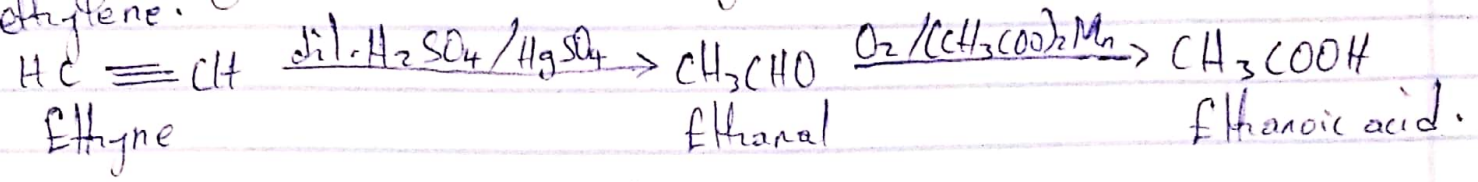 ethylene.
HC ≡ CH dil.H₂SO₄/HgSO₄ → CH₃CHO O₂/(CH₃COO)₂Mn → CH₃COOH
Ethyne Ethanal Ethanoic acid.